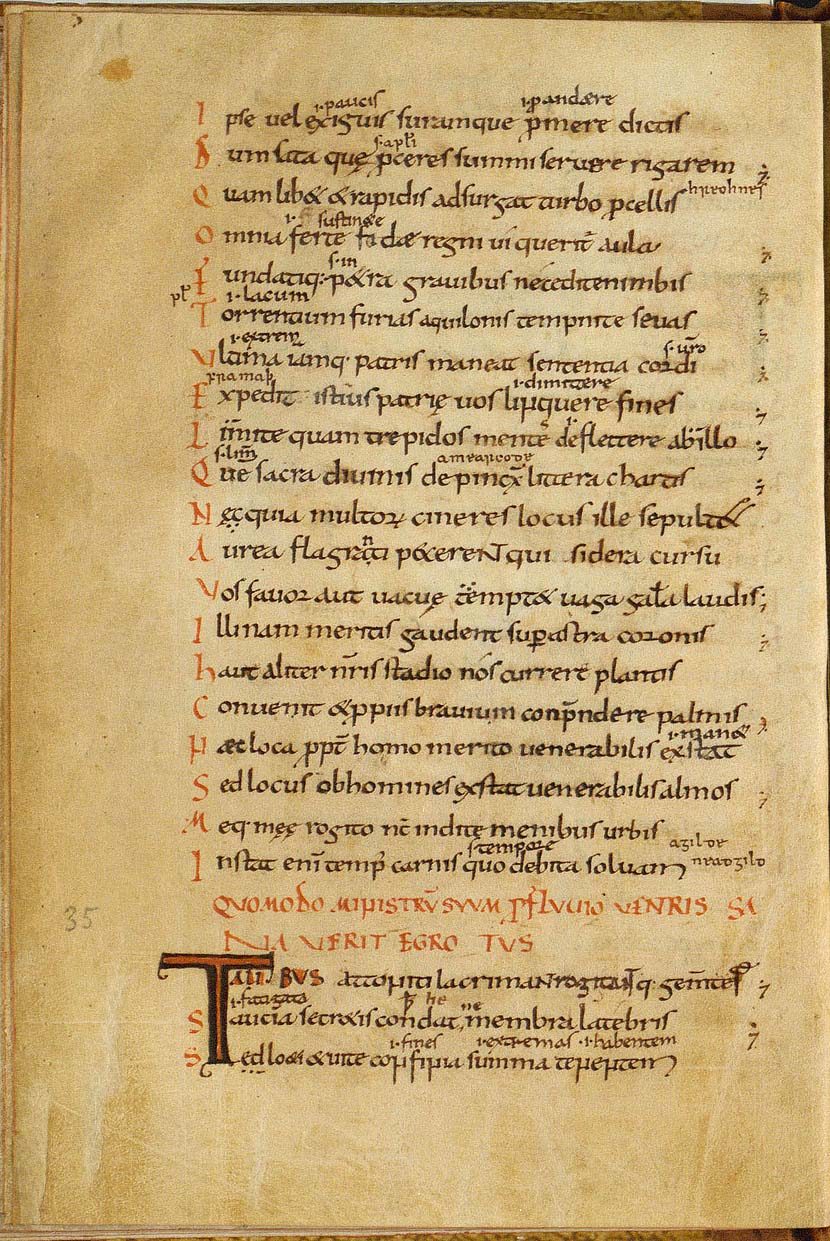 i·paucis i·pandære
Ipse vel exiguis suramque p̄mere dictis
s·apłi
Dum sita quę p̄ceres summi servere rigarem
Quam lib& &rapidis adsurgat turbo pcellis
i· sustinete
Omnia ferte fidæ regni ui querit̄ aula
s·in
Fundatiq:·p&ra gravibus necedite nimbis
i·lacum
Torrentium furias aquilonis tempnite sevas
i·extrem s·uro
Ultima iamq· patris maneat sententia cordi
i·dimittere
Expedit istius patrię vos linquere fines
Limite quam trepidos mente deflettere ab illo
s·lim̄
Quę sacra divinis depincx̄ littera chartis
Nęc quia multoꝝ cineres locus ille sepultos
Aurea flagranti poscerent qui sidera cursu
Vos favor aut vacuę c̄empt& vaga gał̄a laudis;
Illi nam meritis gaudent sup astra coronis
haut aliter nr̄is stadio nos currere plantis
Convenit &ppiis bravium conp̄ndere palmis
i·manæ
Hæc loca ppt̄ homo merito venerabilis exstat
Sed locus ob homines exstat venerabilis almos
Meq· męę rogito nc̄ indite menibus urbis
s·tempore agilde
Instat eni temp̄ carnis quo debita solvam
QUOMODO MINISTRŪ SUUM P FLUVIO VENTRIS SA
NAVERIT EGROTUS
TALIBUS attoniti lacrimant rogitantq· gementes
i·fatigata
Saucia secretis condat, membra latebris
i·fines i·extremas ·i·habentem
Sed loca & vite confinia summa tenentem
35